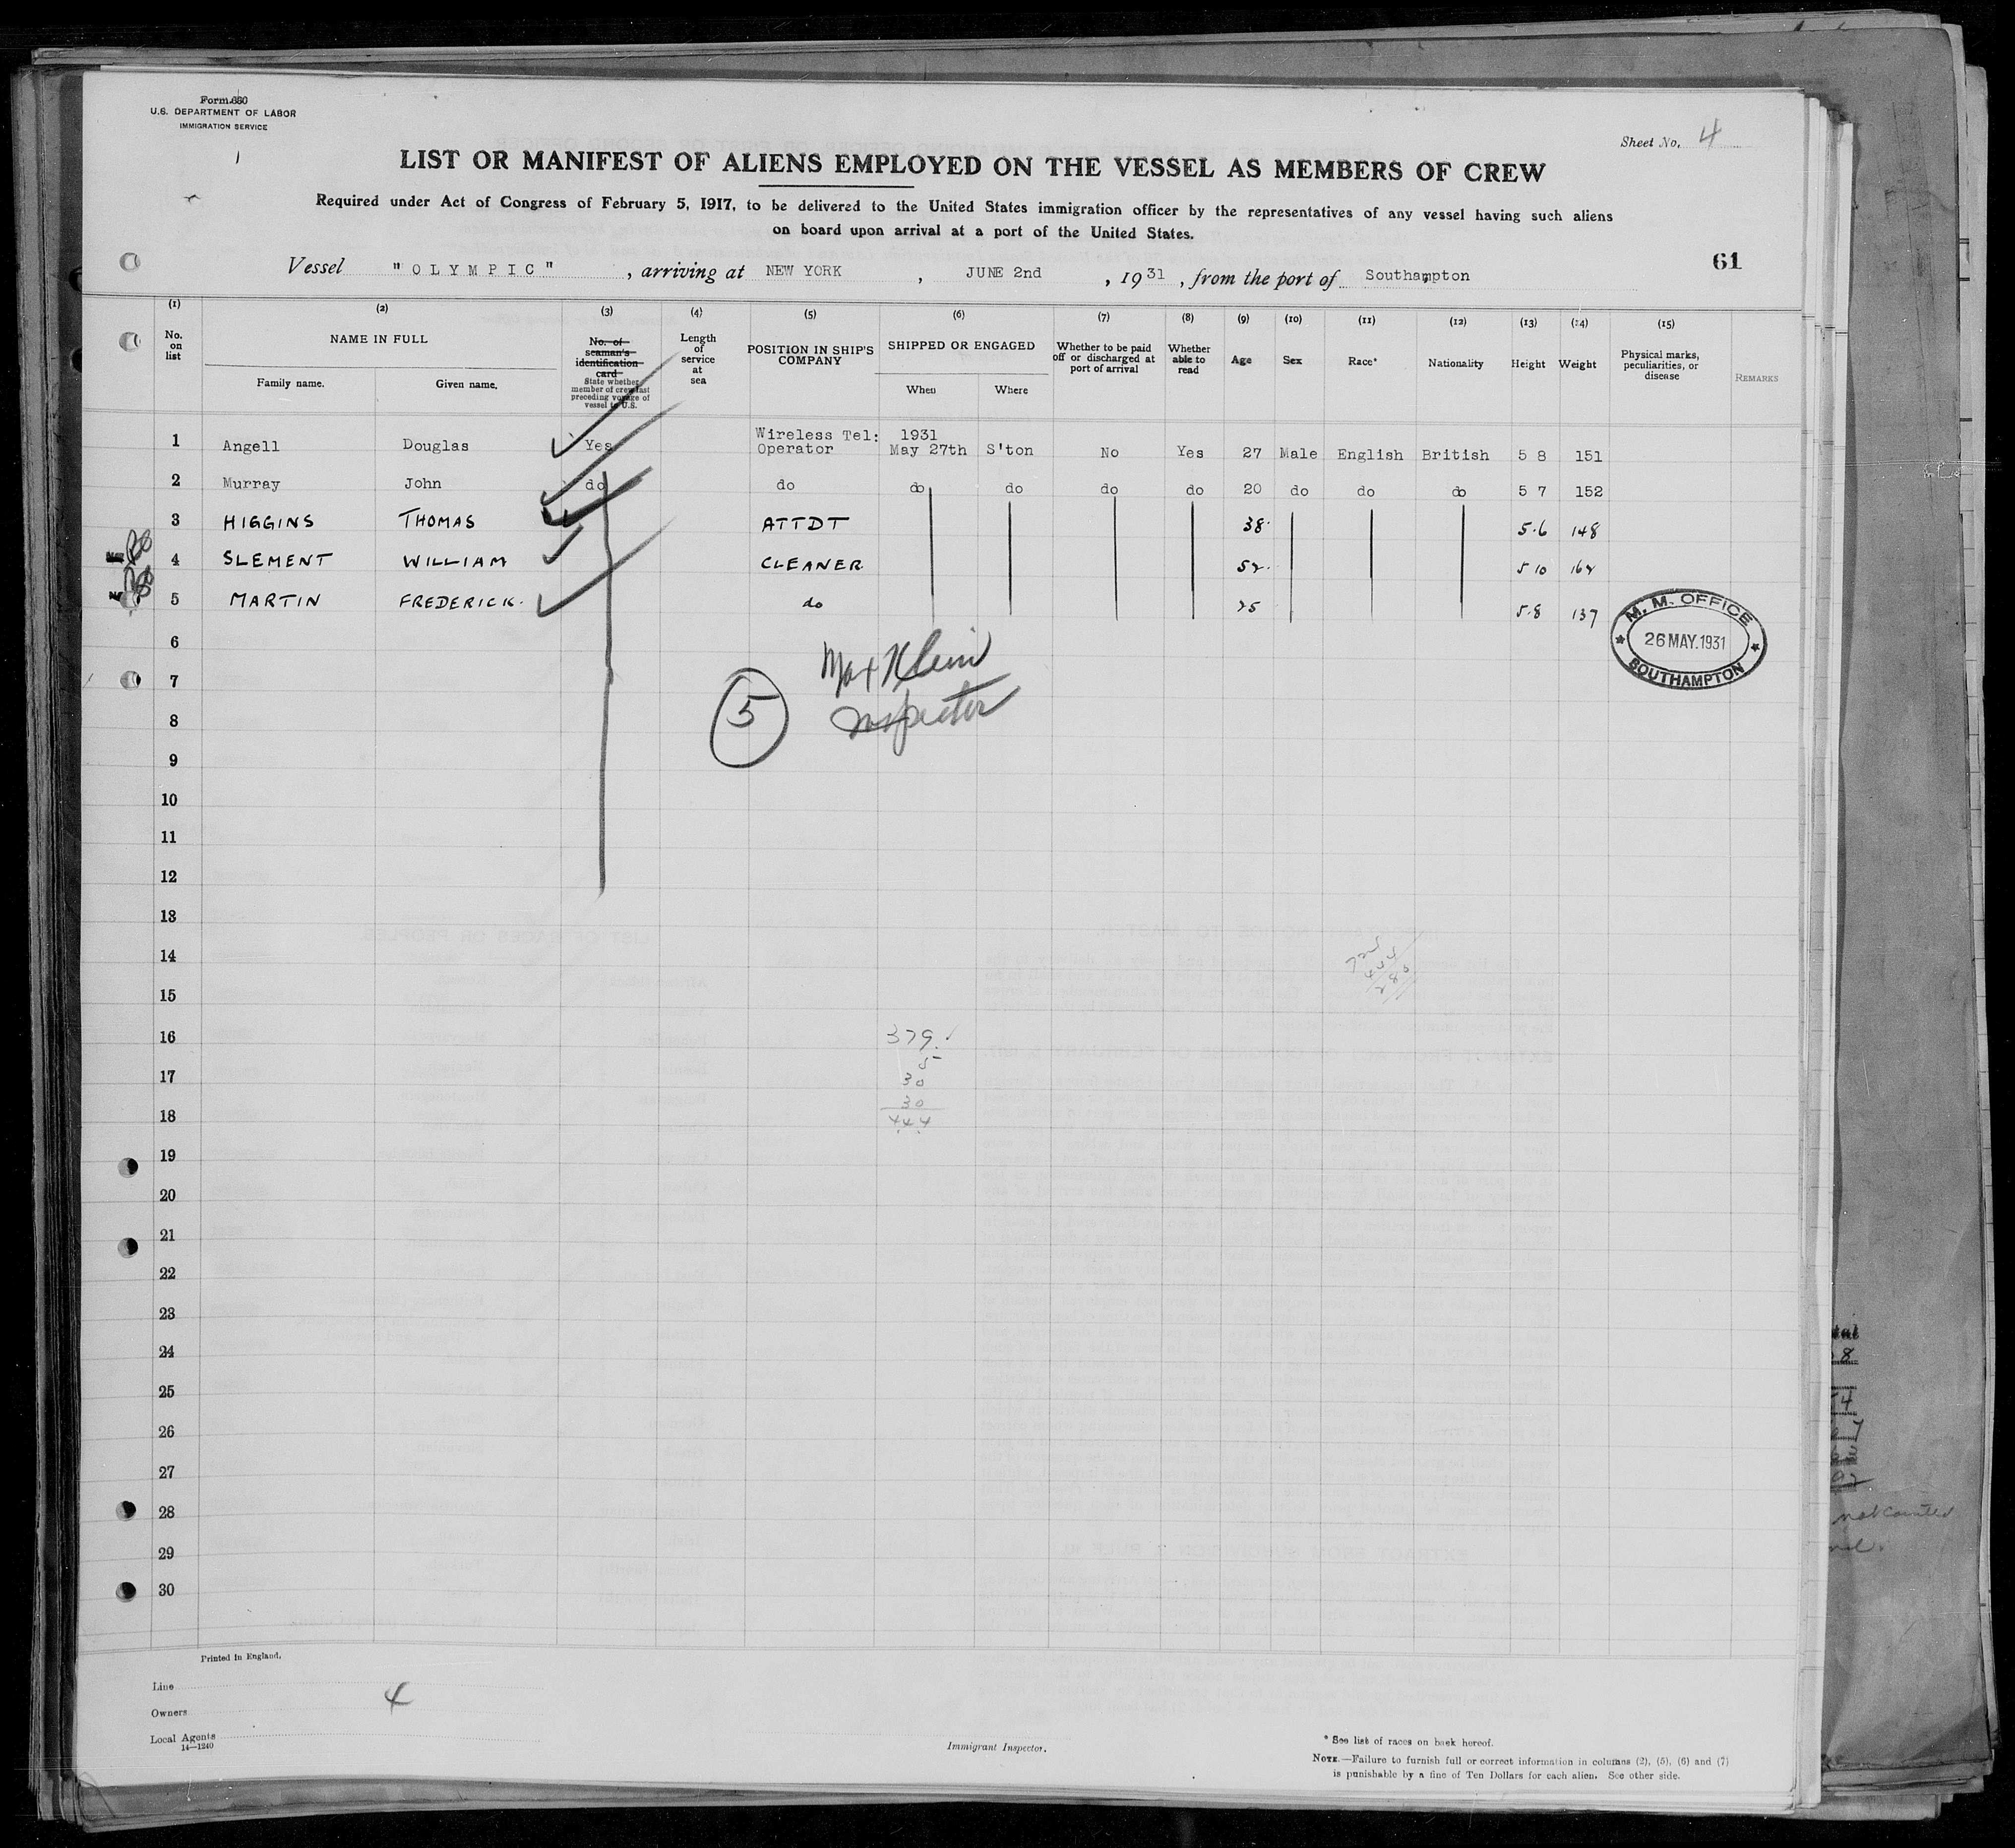 Form 680
U.S. DEPARTMENT OF LABOR
IMMIGRATION SERVICE
Sheet No. 4
LIST OR MANIFEST OF ALIENS EMPLOYED ON THE VESSEL AS MEMBERS OF CREW
Required under Act of Congress of February 5, 1917, to be delivered to the United States immigration officer by the representatives of any vessel having such aliens
on board upon arrival at a port of the United States.
61
Vessel "OLYMPIC", arriving at NEW YORK, JUNE 2nd, 1931, from the port of Southampton
(1) (2) (3) (4) (5) (6) (7) (8) (9) (10) (11) (12) (13) (14) (15)
No. on list
NAME IN FULL
Family name. Given name.
No. of seaman's identification card
State whether member of crew last preceding voyage of vessel to U.S.
Length of service at sea
POSITION IN SHIP'S COMPANY
SHIPPED OR ENGAGED
When Where
Whether to be paid off or discharged at port of arrival
Whether able to read
Age
Sex
Race*
Nationality
Height
Weight
Physical marks, peculiarities, or disease
REMARKS
1 Angell Douglas Yes Wireless Tel: Operator 1931 May 27th S'ton No Yes 27 Male English British 5 8 151
2 Murray John do do do do do do 20 do do do 5 7 152
3 HIGGINS THOMAS ATTDT 38 5.6 148
4 SLEMENT WILLIAM CLEANER 52 5 10 164
5 MARTIN FREDERICK. do 25 5.8 137
M. M. OFFICE
26 MAY.1931
SOUTHAMPTON
6
Max Klein
7
5
Inspector
8
9
10
11
12
13
14
15
16
379
17
5
30
18
30
444
19
20
21
22
23
24
25
26
27
28
29
30
Printed in England.
Line
4
Owners
Local Agents
14—1240
Immigrant Inspector.
* See list of races on back hereof.
NOTE.—Failure to furnish full or correct information in columns (2), (5), (6) and (7)
is punishable by a fine of Ten Dollars for each alien. See other side.
not counted